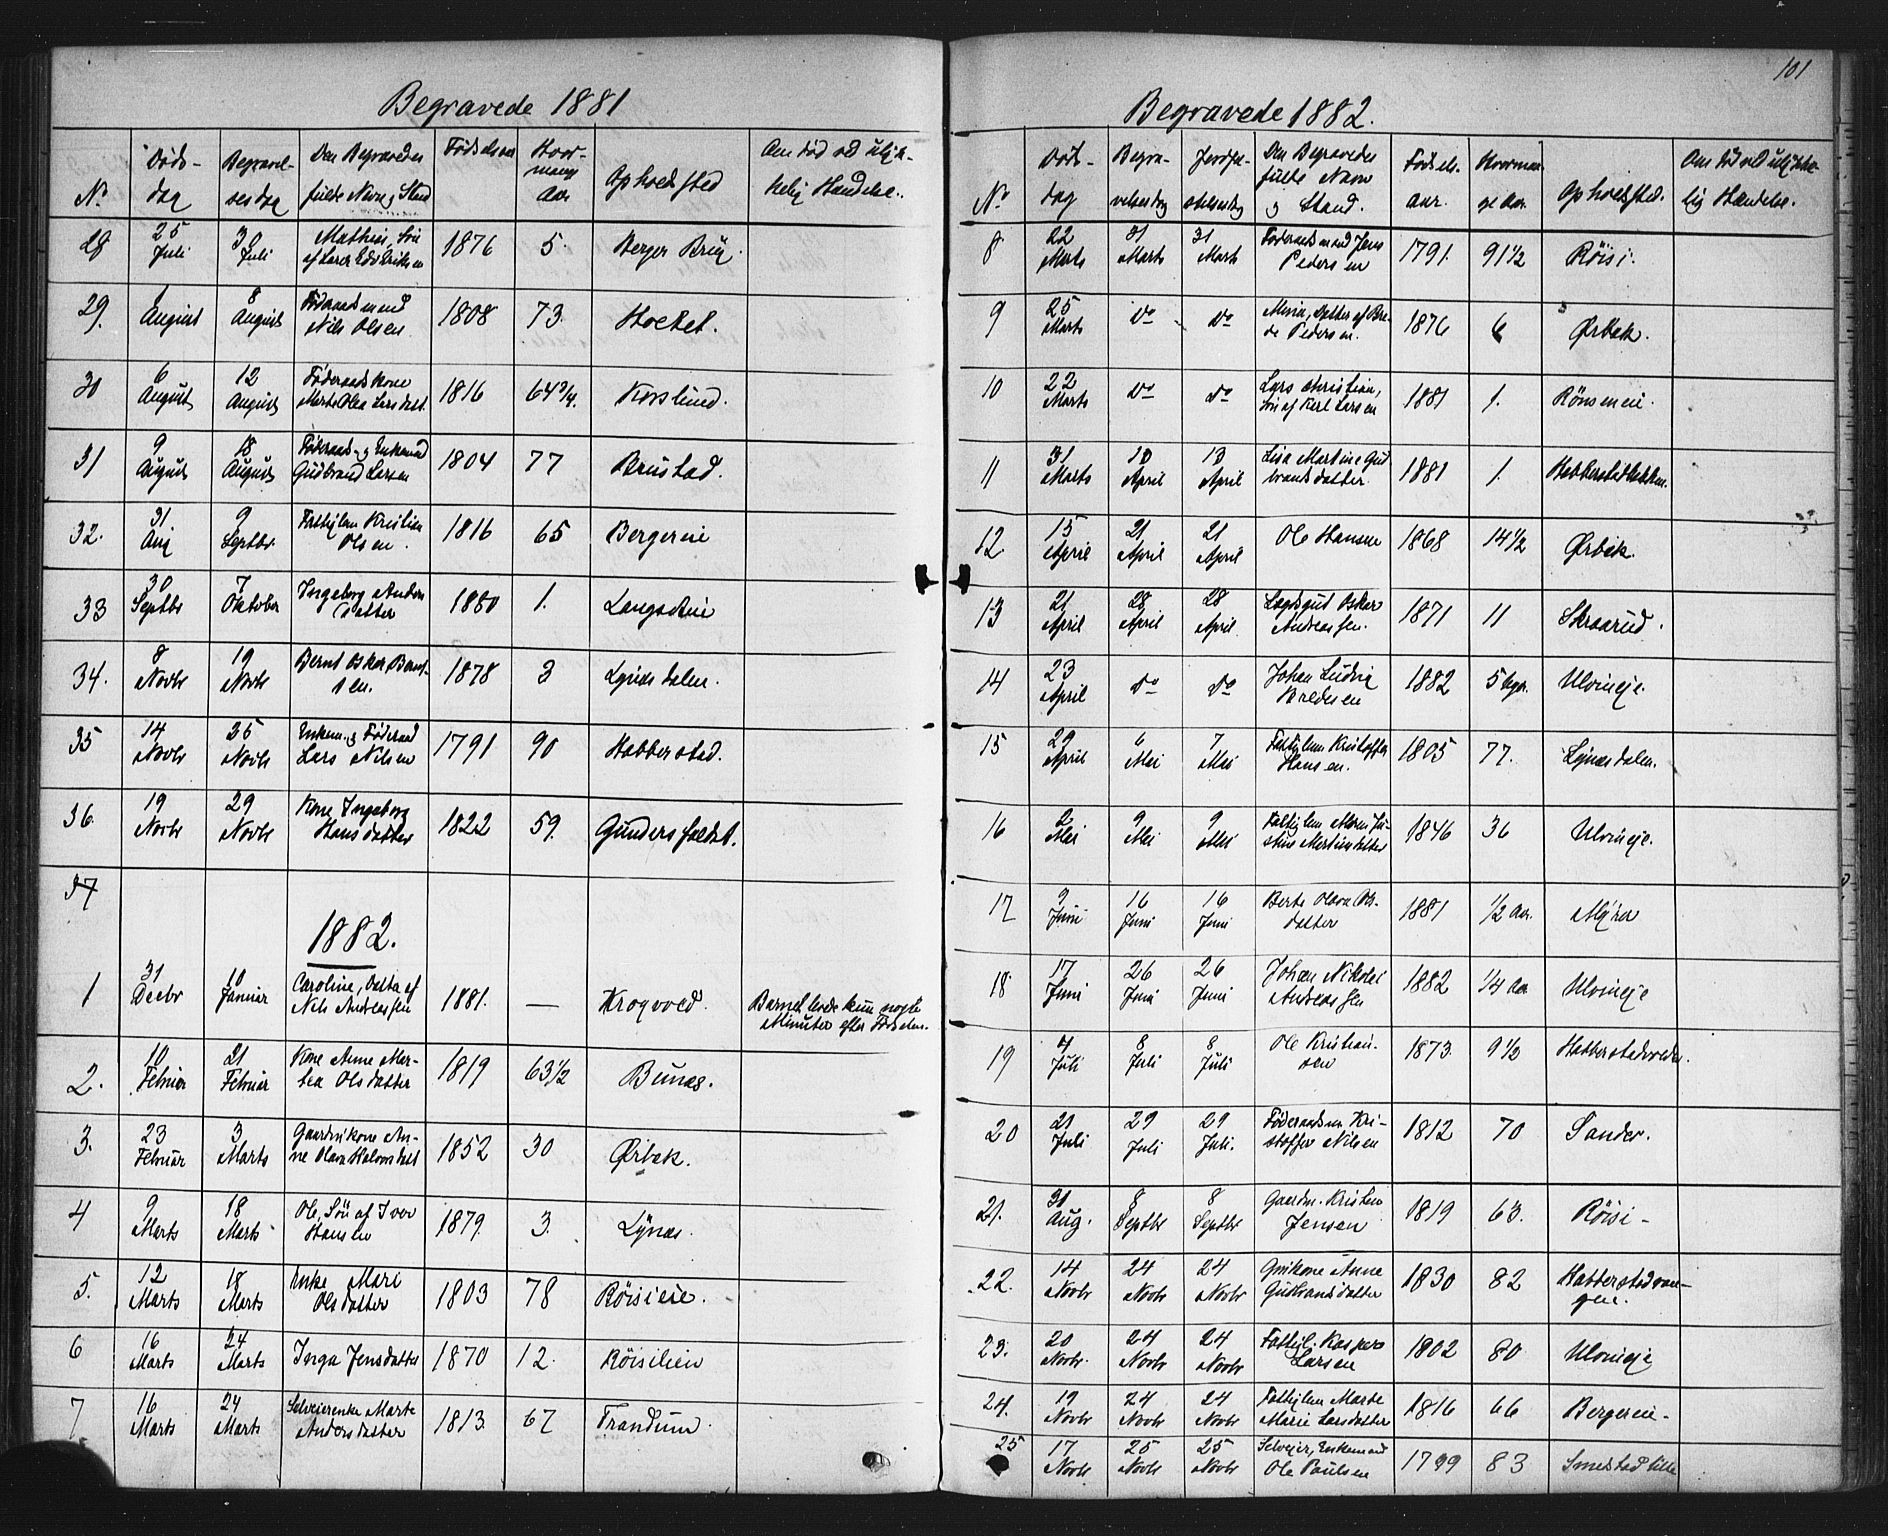 Begravede 1881
No
Døds-
dag
Begravel-
sesdag
Den Begravedes
fulde Navn og Stand
Fødselsaar
Hvor-
mange
Aar
Opholdsted
Om død ved ulyk-
kelig Hændelse.
28 25 Juli 30 Juli Mathias, Søn
af Lars Edv Eriksen 1876 5. Berger Brug.
29. 1 August 8 August Føderaadsmand
Nils Olsen 1808 73.
30 6 August 12 August Føderaadskone
Marte Olea Larsdatt. 1816 64 3/4. Korslund.
31 9 August 18 August Føderaads- og Enkemand
Gudbrand Larsen 1804 77 Brustad.
32. 31 Aug 9 Septbr. Fattiglem Kristian
Olsen. 1816 65 Bergereie
33 30 Septbr 7 Oktober Ingeborg Anders
Datter 1880 1.
34. 8 Novbr 19 Novbr Bernt Oskar Bernt-
sen. 1878 3 Lynæsdalen.
35 14 Novbr 25 Novbr Enkem. og Føderaad
Lars Nilsen 1791 90 Habberstad.
36. 19 Novbr 29 Novbr Kone Ingeborg
Hansdatter 1822 59. Gundersfældet.
37
1882.
1 31 Decbr 10 Januar Caroline, Datter af
Nils Andreassen 1881. — Krogvold. Barnet levde kun nogle
Minuter efter Fødselen.
2. 10 Februar 21 Februar Kone Anne Mar-
tea Olsdatter 1819 63 1/2 Bunæs.
3. 23 Februar 3 Marts Gaardmkone An-
ne Olava Halvorsdatt 1852 30 Ørbæk.
4 9 Marts 18 Marts Ole, Søn af Iver
Hansen 1879. 3. Lynæs.
5. 12 Marts 18 Marts Enke Mari
Olsdatter 1803 78 Røisieie.
6 16 Marts 24 Marts Inga Jensdatter 1870 12. Røisilien
7 16 Marts 24 Marts Selveierenke Marte
Andersdatter 1813. 67 Trandum.
101
Begravede 1882.
No
Døds-
dag
Begra-
velsesdag
Jordpa-
kastelsesdag
Den Begravedes
fulde Navn
og Stand.
Fødsels-
aar.
Hvorman-
ge Aar.
Opholdsted.
Om død ved ulykke-
lig Hændelse.
8 22 Marts 31 Marts 31 Marts Føderaadsmand Jens
Pedersen 1791. 91 1/2 Røisi.
9 25 Marts Do Do Maria, Datter af Bre-
de Pedersen. 1876 6 Ørbæk.
10 22 Marts Do Do Lars Christian,
Søn af Karl Larsen 1881 1. Rønseneie.
11 31 Marts 13 April 13 April Lisa Martine Gud
brandsdatter 1881 1. Habberstadbakken.
12 15 April 21 April 21 April Ole Hansen 1868 14 1/2 Ørbæk.
13 21 April 28 April 28 April Lægdsgut Oskar
Andreassen. 1871 11 Skraarud.
14 23 April Do Do Johan Ludvig
Bredesen 1882 5 Uger. Ulvineje.
15 29 April 6 Mai 7 Mai Fattiglem Kristoffer
Hansen. 1805 77. Lynæsdalen.
16 2 Mai 9 Mai 9 Mai Fattiglem Maren Ju-
stine Martinsdatter 1846 36 Ulvineje.
17 9 Juni 16 Juni 16 Juni Berte Olava Ols-
datter 1881 1/2 Aar. Myhra
18 17 Juni 26 Juni 26 Juni Johan Nikolai
Andreassen 1882 1/4 Aar Ulvineje
19 4 Juli 8 Juli 8 Juli Ole Kristian-
sen 1873. 9 1/2
20 21 Juli 29 Juli 29 Juli. Føderaadsm Kri-
stoffer Nilsen 1812 70 Sander.
21. 31 Aug. 8 Septbr 8 Septbr Gaardm. Kristian
Jensen 1819 63. Røisi-
22. 14 Novbr 24 Novbr 24 Novbr Anne
Gudbrandsdatter 1830 82 Habberstadvan-
gen.
23. 20 Novbr. 24 Novbr 24 Novbr Fattigl. Kasper
Larsen 1802 80 Ulvineje
24. 19 Novbr 24 Novbr 24 Novbr Fattiglem Marte
Marie Larsdatter 1816 66 Bergereie-
25 17 Novbr 25 Novbr 25 Novbr Selveier, Enkemand
Ole Paulsen 1799 83 Smestad lille